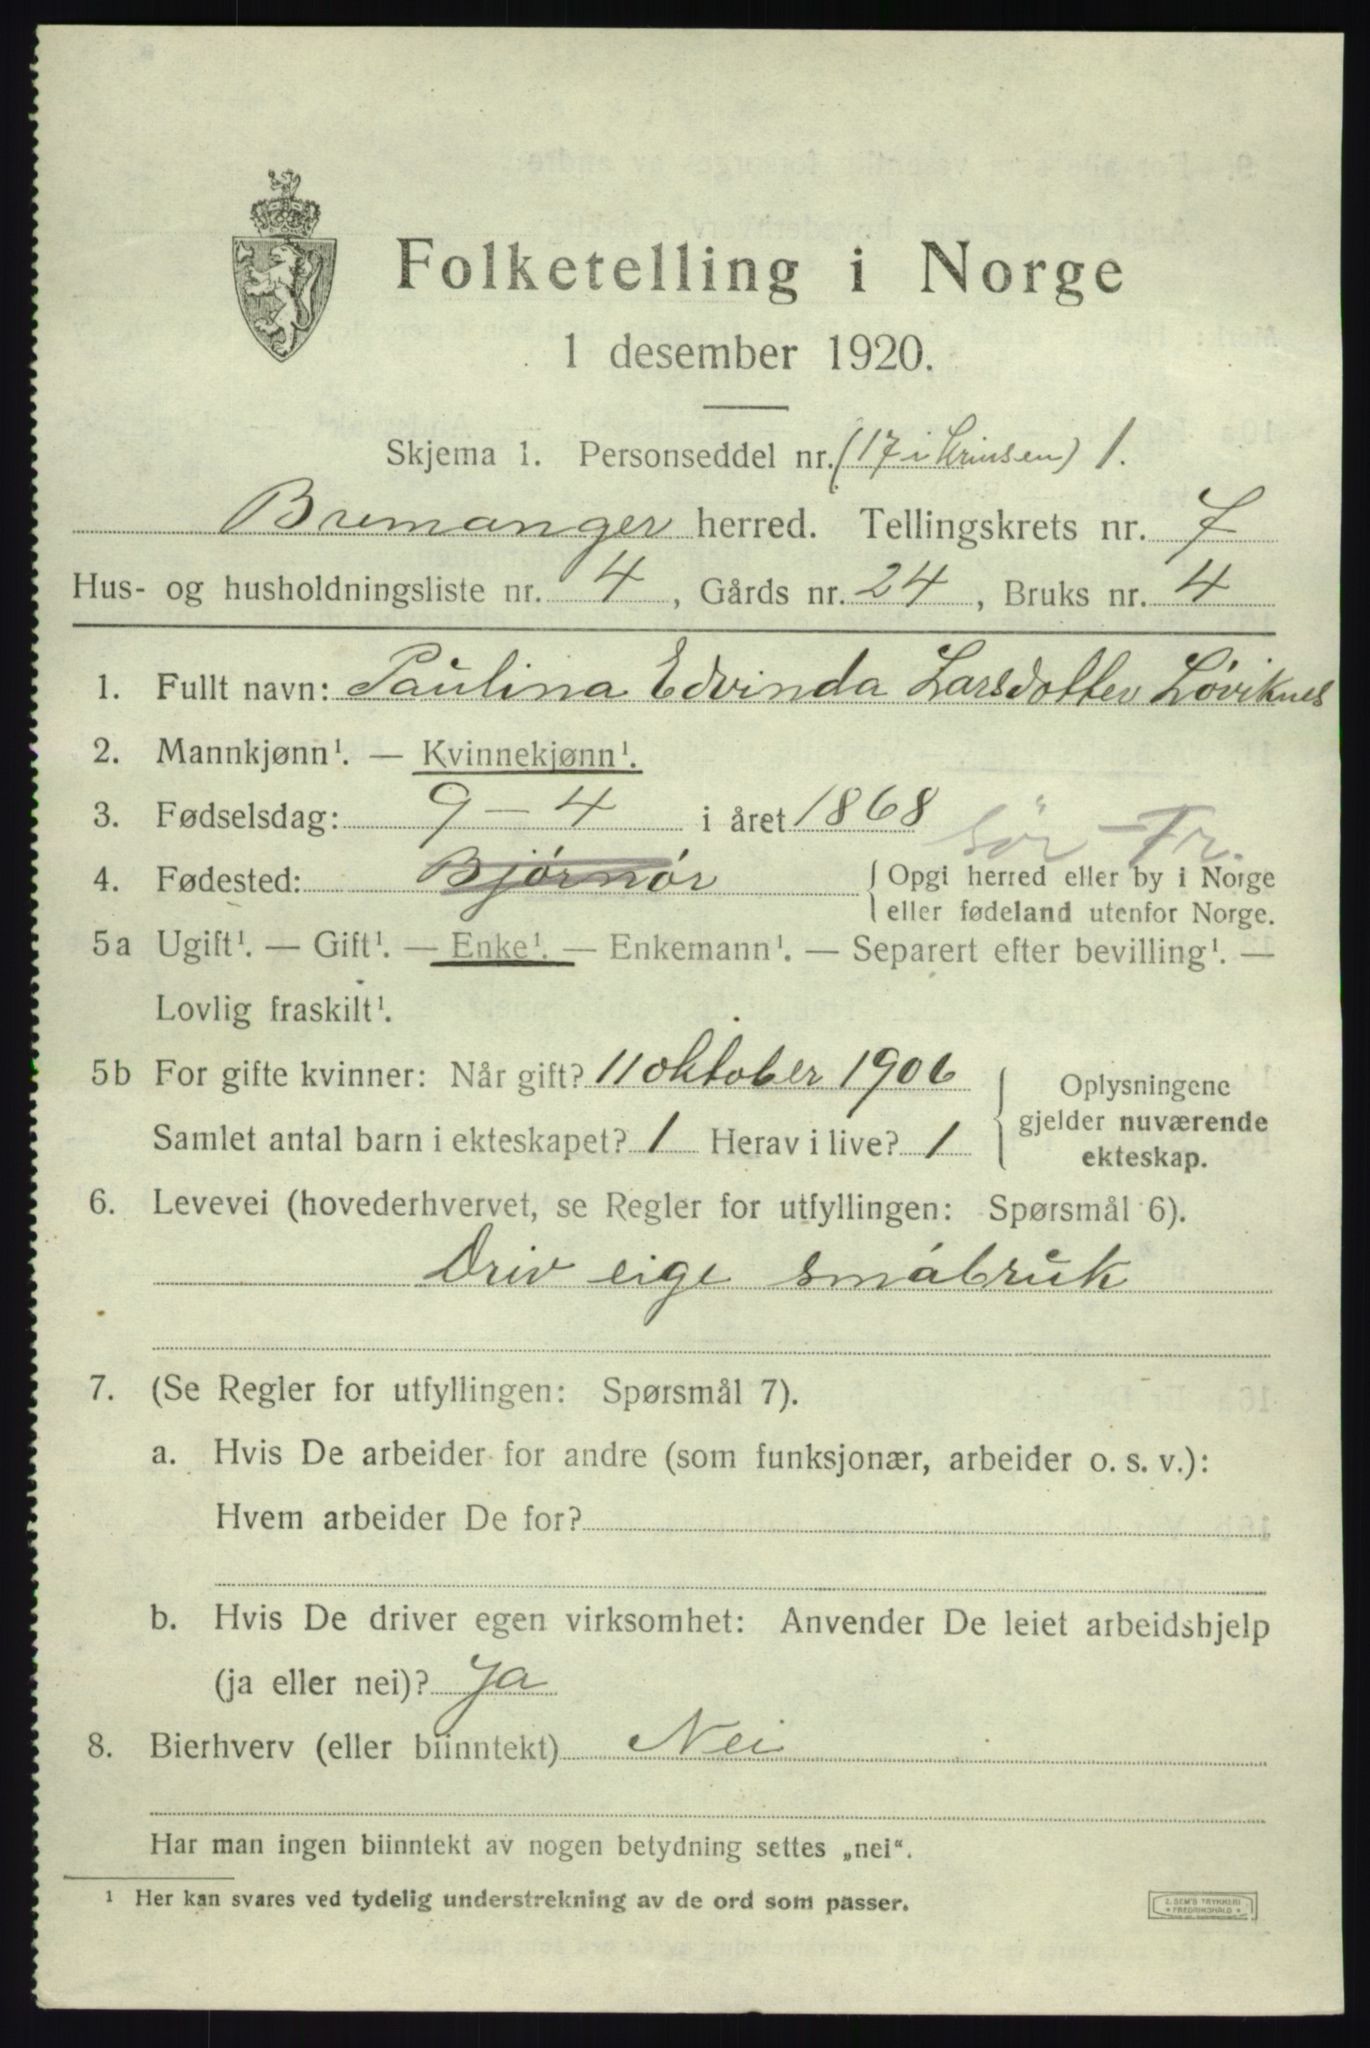 Folketelling i Norge
1 desember 1920.
Skjema 1. Personseddel nr. (17 i krinsen) 1.
Bremanger herred. Tellingskrets nr. 7
Hus- og husholdningsliste nr. 4, Gårds nr. 24, Bruks nr. 4
1. Fullt navn: Paulina Edvinda Larsdotter Løviknes
2. Mannkjønn¹. — Kvinnekjønn¹.
3. Fødselsdag: 9 – 4 i året 1868
Sör-Tr.
4. Fødested: Bjørnør { Opgi herred eller by i Norge
eller fødeland utenfor Norge.
5a Ugift¹. — Gift¹. — Enke¹. — Enkemann¹. — Separert efter bevilling¹. —
Lovlig fraskilt¹.
5b For gifte kvinner: Når gift? 11 oktober 1906 { Oplysningene
gjelder nuværende
Samlet antal barn i ekteskapet? 1 Herav i live? 1
ekteskap.
6. Levevei (hovederhvervet, se Regler for utfyllingen: Spørsmål 6).
Driv eige småbruk
7. (Se Regler for utfyllingen: Spørsmål 7).
a. Hvis De arbeider for andre (som funksjonær, arbeider o. s. v.):
Hvem arbeider De for?
b. Hvis De driver egen virksomhet: Anvender De leiet arbeidshjelp
(ja eller nei)? Ja
8. Bierhverv (eller biinntekt) Nei
Har man ingen biinntekt av nogen betydning settes „nei“.
¹ Her kan svares ved tydelig understrekning av de ord som passer.
E. SEM'S TRYKKERI
* FREDRIKSHALD *